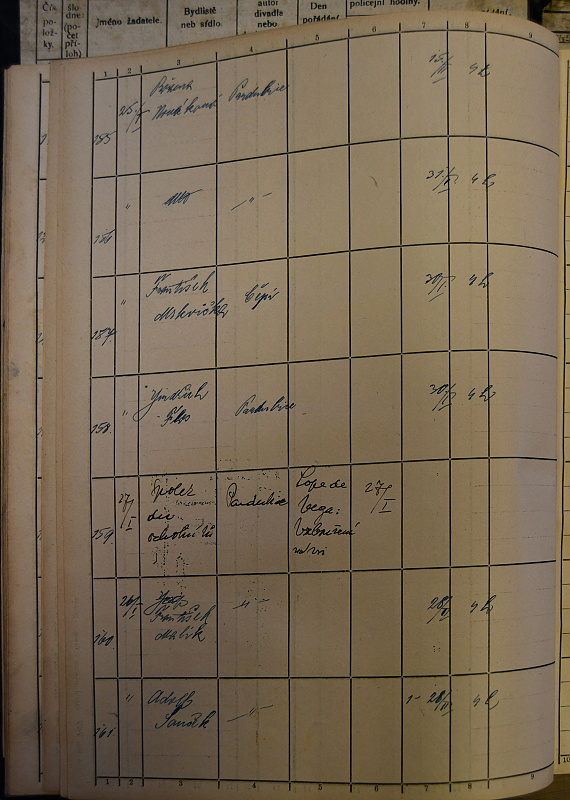 Čís.
po-
lož-
ky.
šlo
dne:
(po-
čet
pří-
loh)
Jméno žadatele.
Bydliště
neb sídlo.
autor
divadla
nebo
Den
pořádání
policejní hodiny.
1 2 3 4 5 6 7 8 9
155 25/I Růžena
Nováková Pardubice 4 h
156 " dtto —"— 31/I 4 h
157 " František
Mrkvička Čepí 30/I 4 h
158. " Jindřich
Pardubice 30/I 4 h
159. 27/I Spolek
div.
ochotníků Pardubice Lope de
Vega:
Vzbouření
27/I
160 26/I František
Malík —"— 28/II 4 h
161. " Adolf
—"— 4 h
1 2 3 4 5 6 7 8 9